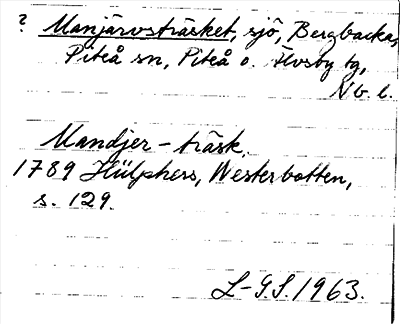 ? Manjärvsträsket, sjö, Bergbacka,
Piteå sn, Piteå o. Älvsby tg,
Nb. l.
Mandjer-träsk.
1789 Hülphers, Westerbotten,
s. 129.
L-G.S. 1963.